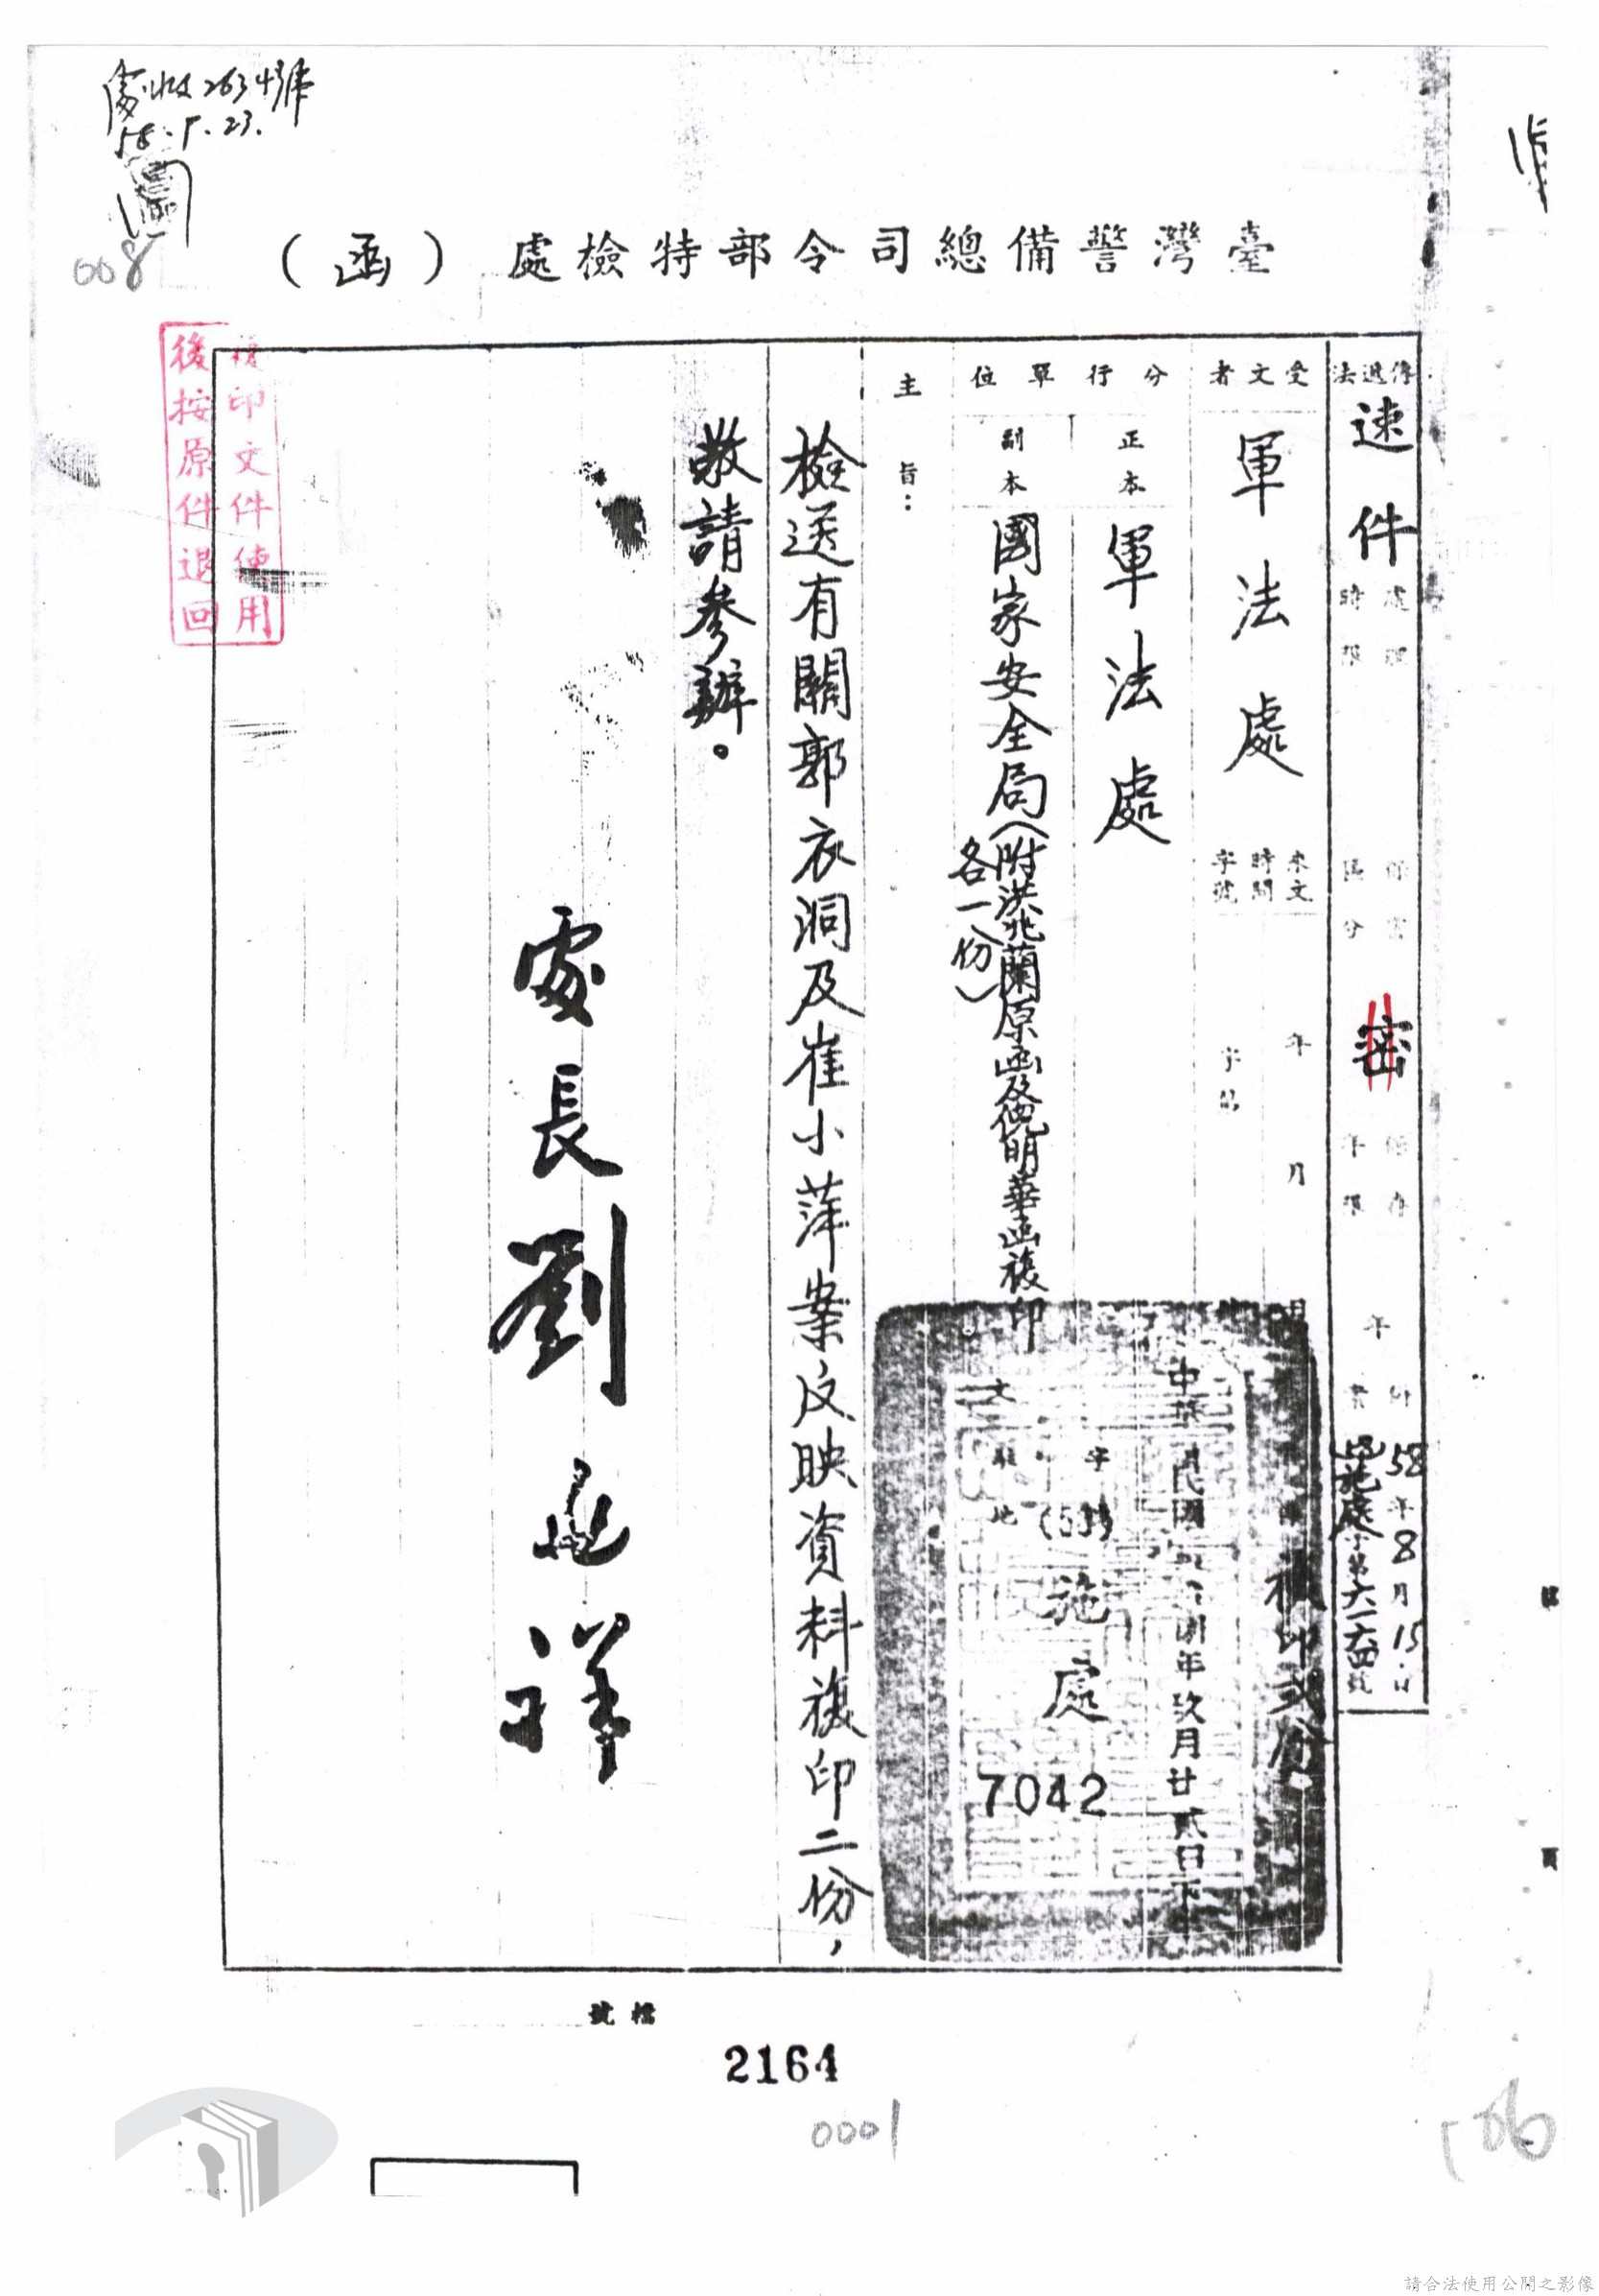 處收2634號
58.9.23.
008
臺灣警備總司令部特檢處（函）
複印文件使用
後按原件退回
傳遞法
速件
處理時限
保密區分
密
保存年限
年
附
58年8月15日
字第六一六四號
受文者
軍法處
來文時間字號
年月
字號
複印貳份
分行單位
正本
軍法處
副本
國家安全局（附洪兆蘭原函及倪明華函複印
各一份）
中華民國
年玖月廿貳日下
字
施處
7042
文
地
主旨：
檢送有關郭衣洞及崔小萍案反映資料複印二份，
敬請參辦。
處長劉
祥
檔號
2164
0001
請合法使用公開之影像